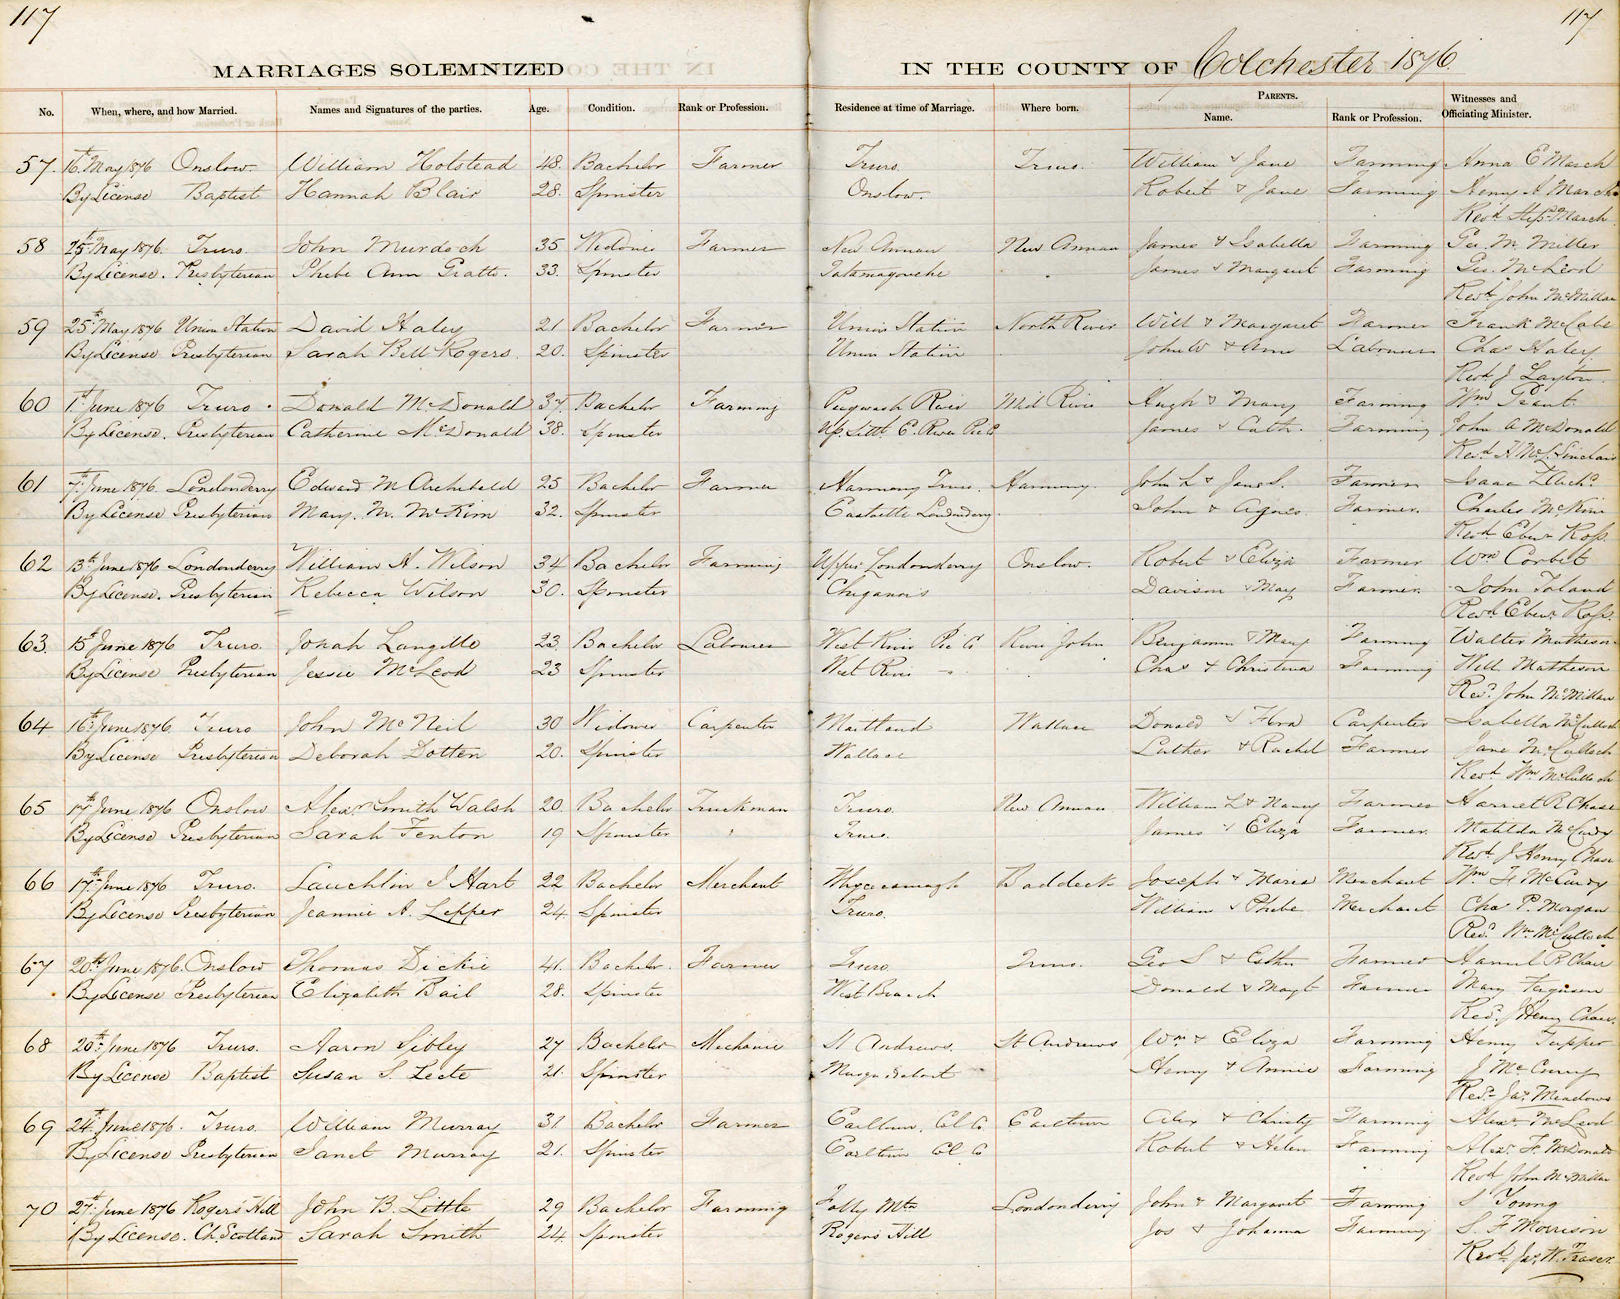 117
117
MARRIAGES SOLEMNIZED IN THE COUNTY OF Colchester 1876.
No. When, where, and how Married. Names and Signatures of the parties. Age. Condition. Rank or Profession. Residence at time of Marriage. Where born. PARENTS. Name. Rank or Profession. Witnesses and Officiating Minister.
57. 16th May 1876 Onslow. William Holstead 48. Bachelor Farmer Truro. Truro. William & Jane Farming Anna E March
By License Baptist Hannah Blair 28. Spinster Onslow. Robert & Jane Farming Henry A March
Revd Stepn March
58 25th May 1876. Truro. John Murdoch 35 Widower Farmer New Annan New Annan James & Isabella Farming Geo. M. Miller
By License. Presbyterian Phebe Ann Gratto. 33. Spinster Tatamagouche James & Margaret Farming Geo. McLeod
Revd John McMillan
59 25th May 1876 Union Station David Haley 21 Bachelor Farmer Union Station North River Will & Margaret Farmer Frank McCabe
By License Presbyterian Sarah Bell Rogers. 20. Spinster Union Station John W & Ann Labourer Chas Haley.
Revd J Layton.
60 1st June 1876 Truro. Donald McDonald 37. Bachelor Farming Pugwash River Mid River Hugh & Mary Farming Wm Grant.
By License. Presbyterian Catherine McDonald 38. Spinster Up. Little E. River Pic Co James & Cath. Farming John A McDonald
Revd Sinclair
61 7th June 1876. Londonderry Edward M Archibald 25 Bachelor Farmer Harmony Truro. Harmony. John L & Jane S. Farmer Isaac Archd.
By License Presbyterian Mary. M. McKim 32. Spinster Londonderry John & Agnes Farmer. Charles McKim
Revd Ebenr Ross.
62 13th June 1876 Londonderry William A. Wilson 34 Bachelor Farming Upper Londonderry Onslow. Robert & Eliza Farmer Wm Corbet
By License. Presbyterian Rebecca Wilson 30. Spinster Chiganois Davison & May Farmer. John Toland
Revd Ebenr Ross.
63. 15th June 1876 Truro. Jonah Langille 23. Bachelor Labourer West River Pic Co River John Benjamin & Mary Farming Walter Matheson
By License Presbyterian Jessie McLeod 23 Spinster West River Chas & Christina Farming Will Matheson
Revd John McMillan
64 16th June 1876. Truro John McNeil 30 Widower Carpenter Maitland Wallace Donald & Flora Carpenter Isabella McCulloch
By License Presbyterian Deborah Dotten 20. Spinster Wallace Luther & Rachel Farmer Jane McCulloch
Revd Wm McCulloch
65 17th June 1876 Onslow Alexr Smith Walsh 20. Bachelor Truckman Truro. New Annan William L & Nancy Farmer Harriet R Chase
By License Presbyterian Sarah Fenton 19 Spinster Truro. James & Eliza Farmer. Matilda McCurdy
Revd J Henry Chase
66 17th June 1876 Truro. Lauchlin J Hart 22 Bachelor Merchant Whycocomagh Baddeck Joseph & Maria Merchant Wm F McCurdy
By License Presbyterian Jeannie A. Lepper 24 Spinster Truro. William & Phebe Merchant Chas P. Morgan
Revd Wm McCulloch
67 20th June 1876. Onslow Thomas Dickie 41. Bachelor. Farmer Truro. Truro. Geo S & Esther Farmer R Chase
By License Presbyterian Elizabeth Bail 28. Spinster West Branch Donald & Margt Farmer Mary Ferguson
Revd J Henry Chase.
68 20th June 1876 Truro. Aaron Sibley 27 Bachelor Mechanic St Andrews. St Andrews Wm & Eliza Farming Henry Tupper
By License Baptist Susan S. Leete 21. Spinster Musquodoboit Henry & Annie Farming J McCurdy
Revd Jas. Meadows
69 24th June 1876. Truro. William Murray 31. Bachelor Farmer Earltown, Col Co. Earltown Alex & Christy Farming Alexr McLeod
By License Presbyterian Janet Murray 21. Spinster Earltown Col Co Robert & Helen Farming Alexr F. McDonald
Revd John McMillan
70 27th June 1876 Roger's Hill John B. Little 29 Bachelor Farming Folly Mtn Londonderry John & Margaret Farming S Young
By License. Ch. Scotland Sarah Smith 24. Spinster Rogers Hill Jos & Johanna Farming S F Morrison
Revd Jas. W. Fraser.